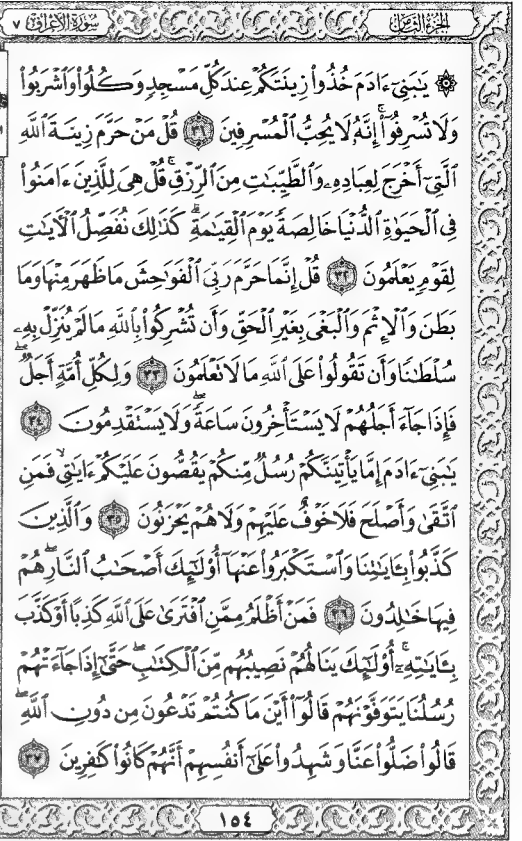 سُورَةُ الأَعْرَافِ ٧
الجُزْءُ الثَّامِنُ
۞ يَٰبَنِىٓ ءَادَمَ خُذُوا۟ زِينَتَكُمْ عِندَ كُلِّ مَسْجِدٍ وَكُلُوا۟ وَٱشْرَبُوا۟
وَلَا تُسْرِفُوٓا۟ ۚ إِنَّهُۥ لَا يُحِبُّ ٱلْمُسْرِفِينَ ٣١ قُلْ مَنْ حَرَّمَ زِينَةَ ٱللَّهِ
ٱلَّتِىٓ أَخْرَجَ لِعِبَادِهِۦ وَٱلطَّيِّبَٰتِ مِنَ ٱلرِّزْقِ ۚ قُلْ هِىَ لِلَّذِينَ ءَامَنُوا۟
فِى ٱلْحَيَوٰةِ ٱلدُّنْيَا خَالِصَةً يَوْمَ ٱلْقِيَٰمَةِ ۗ كَذَٰلِكَ نُفَصِّلُ ٱلْءَايَٰتِ
لِقَوْمٍ يَعْلَمُونَ ٣٢ قُلْ إِنَّمَا حَرَّمَ رَبِّىَ ٱلْفَوَٰحِشَ مَا ظَهَرَ مِنْهَا وَمَا
بَطَنَ وَٱلْإِثْمَ وَٱلْبَغْىَ بِغَيْرِ ٱلْحَقِّ وَأَن تُشْرِكُوا۟ بِٱللَّهِ مَا لَمْ يُنَزِّلْ بِهِۦ
سُلْطَٰنًا وَأَن تَقُولُوا۟ عَلَى ٱللَّهِ مَا لَا تَعْلَمُونَ ٣٣ وَلِكُلِّ أُمَّةٍ أَجَلٌ ۖ
فَإِذَا جَآءَ أَجَلُهُمْ لَا يَسْتَأْخِرُونَ سَاعَةً ۖ وَلَا يَسْتَقْدِمُونَ ٣٤
يَٰبَنِىٓ ءَادَمَ إِمَّا يَأْتِيَنَّكُمْ رُسُلٌ مِّنكُمْ يَقُصُّونَ عَلَيْكُمْ ءَايَٰتِى ۙ فَمَنِ
ٱتَّقَىٰ وَأَصْلَحَ فَلَا خَوْفٌ عَلَيْهِمْ وَلَا هُمْ يَحْزَنُونَ ٣٥ وَٱلَّذِينَ
كَذَّبُوا۟ بِـَٔايَٰتِنَا وَٱسْتَكْبَرُوا۟ عَنْهَآ أُو۟لَٰٓئِكَ أَصْحَٰبُ ٱلنَّارِ ۖ هُمْ
فِيهَا خَٰلِدُونَ ٣٦ فَمَنْ أَظْلَمُ مِمَّنِ ٱفْتَرَىٰ عَلَى ٱللَّهِ كَذِبًا أَوْ كَذَّبَ
بِـَٔايَٰتِهِۦٓ ۚ أُو۟لَٰٓئِكَ يَنَالُهُمْ نَصِيبُهُم مِّنَ ٱلْكِتَٰبِ ۖ حَتَّىٰٓ إِذَا جَآءَتْهُمْ
رُسُلُنَا يَتَوَفَّوْنَهُمْ قَالُوٓا۟ أَيْنَ مَا كُنتُمْ تَدْعُونَ مِن دُونِ ٱللَّهِ ۖ
قَالُوا۟ ضَلُّوا۟ عَنَّا وَشَهِدُوا۟ عَلَىٰٓ أَنفُسِهِمْ أَنَّهُمْ كَانُوا۟ كَٰفِرِينَ ٣٧
١٥٤